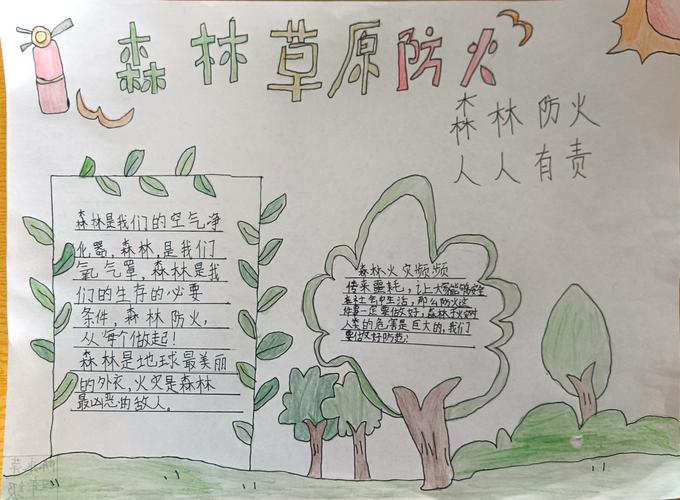 森林草原防火
森林防火
人人有责
森林是我们的空气净
化器，森林，是我们
氧气罩，森林是我
们的生存的必要
条件，森林防火，
从每个做起！
森林是地球最美丽
的外衣，火灾是森林
最凶恶的敌人。
森林火灾频频
传来噩耗，让大家能够安全
在社会中生活，那么防火这
件事一定要做好，森林火灾对
人类的危害是巨大的，我们
要做好防范！